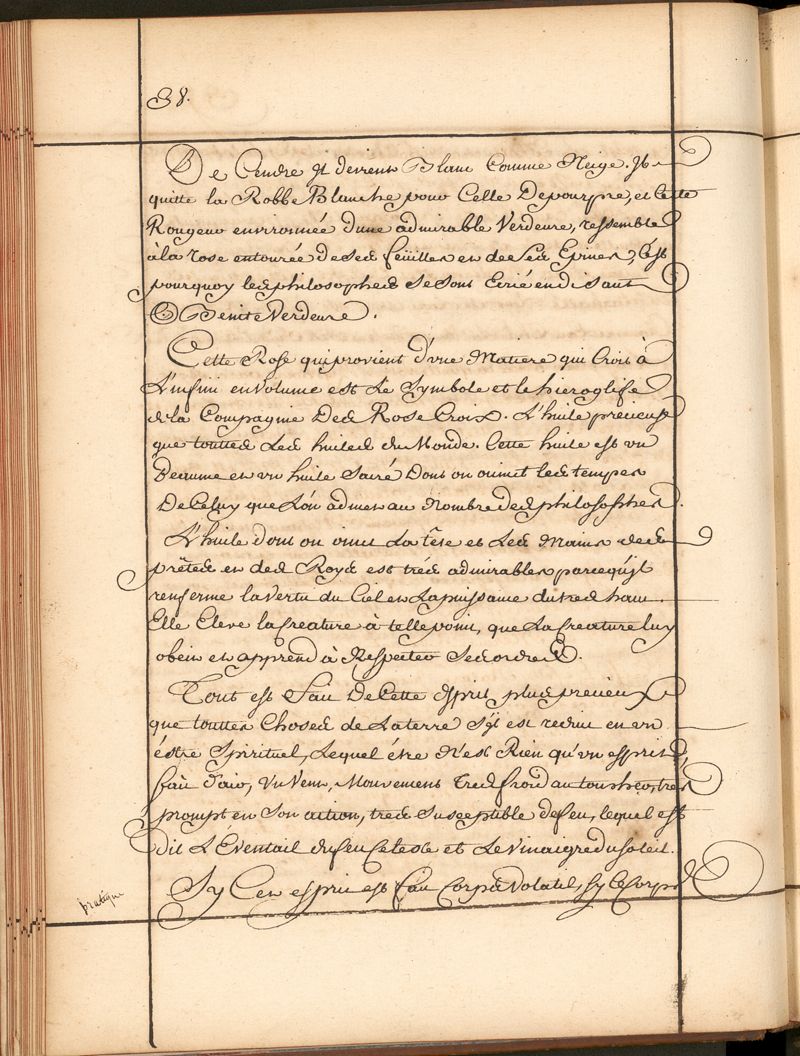 38.
De Cendre Jl devient Blanc Comme Neige. Jl
quitte la Robbe Blanche pour Celle Depourpre, et Cette
Rougeur environnée dune admirable Verdeure, ressemble
àla rose entourée deses feüilles et deses Epines, C'est
pourquoy les philosophes se sont Ecrié en disant
O Benite Verdeure.
Cette Rose qui provient d'vne Matiere qui Croit à
L'infini en Volume est Le Symbole et le hieroglife
de la Compagnie Des Rose Croix. L'huile precieuse
que touttes Les huiles du Monde. Cette huile est vn
Beaume et vn huile Sacré Dont on oin les temples
De Celuy que L'on admet au Nombre des philosophes.
L'huile dont on oint La tête et Les Mains des
prêtes et des Roys est tres admirables parcequ'jl
renferme la Vertu du Ciel et La puissance du tres haut.
Elle Eleve la Creature à telle point, que La Creature luy
obeit et apprend à Respecter Ses ordres.
Tout est Fait De Cette Esprit, plus precieux
que touttes Choses de La terre s'jl est reduit en vn
éstre Spirituel, Lequel étre N'est Rien qu'vn esprit
fait d'air, Vn Vent, Mouvement tres froid au toucher, tres
prompt en Son action, tres Susceptible de feu, lequel est
dit L'Eventail du feu Celeste et Le Vinaigre du Soleil.
Sy Cet esprit est fait Corps Volatil, Sy Ce Corps
pratique